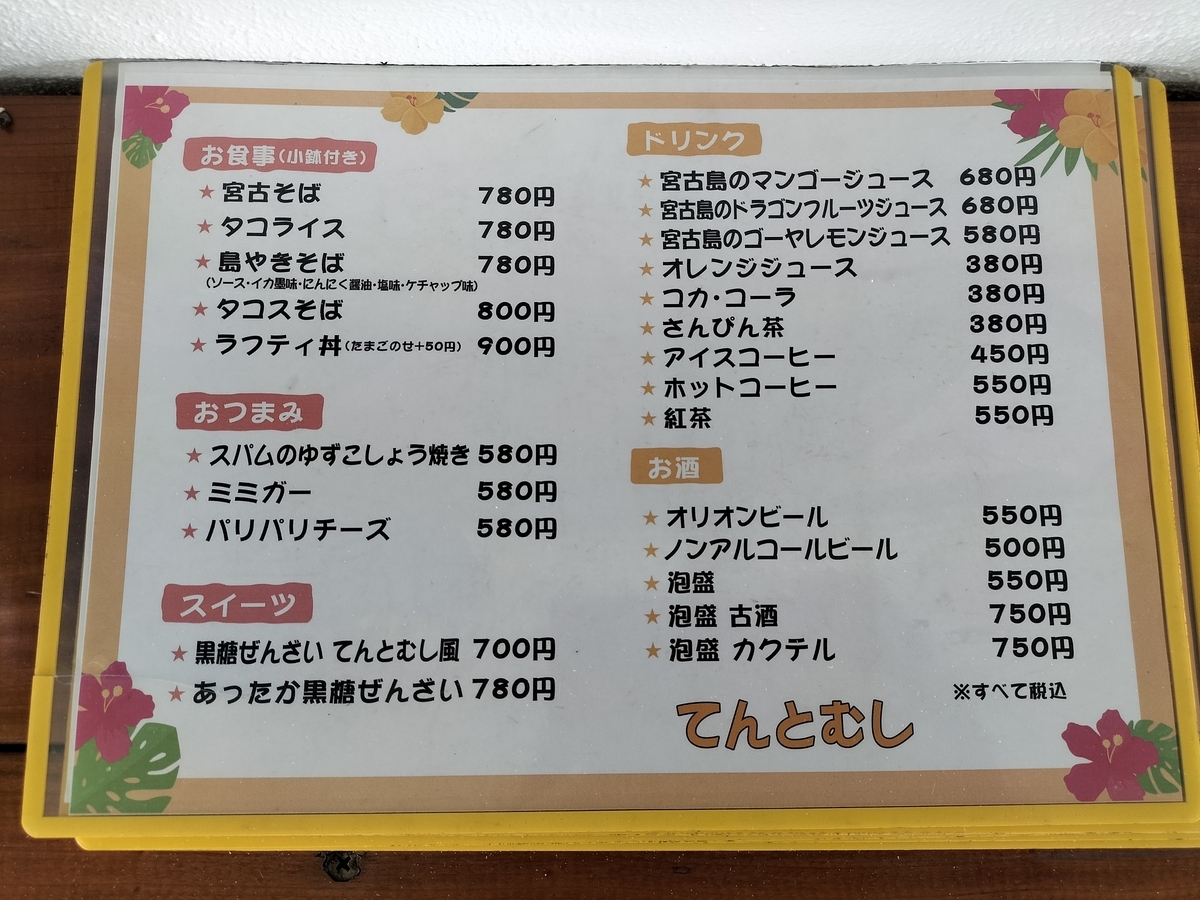 お食事(小鉢付き)
★ 宮古そば 780円
★ タコライス 780円
★ 島やきそば 780円
(ソース・イカ墨味・にんにく醤油・塩味・ケチャップ味)
★ タコスそば 800円
★ ラフティ丼(たまごのせ+50円) 900円
おつまみ
★ スパムのゆずこしょう焼き 580円
★ ミミガー 580円
★ パリパリチーズ 580円
スイーツ
★ 黒糖ぜんざい てんとむし風 700円
★ あったか黒糖ぜんざい 780円
ドリンク
★ 宮古島のマンゴージュース 680円
★ 宮古島のドラゴンフルーツジュース 680円
★ 宮古島のゴーヤレモンジュース 580円
★ オレンジジュース 380円
★ コカ・コーラ 380円
★ さんぴん茶 380円
★ アイスコーヒー 450円
★ ホットコーヒー 550円
★ 紅茶 550円
お酒
★ オリオンビール 550円
★ ノンアルコールビール 500円
★ 泡盛 550円
★ 泡盛 古酒 750円
★ 泡盛 カクテル 750円
※すべて税込
てんとむし